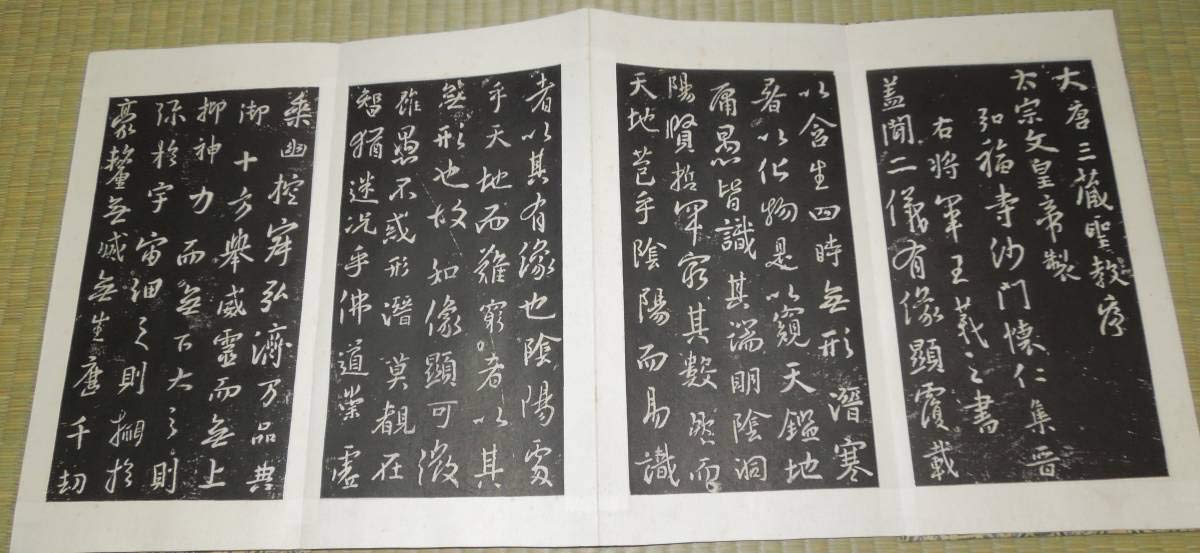 大唐三藏聖教序
太宗文皇帝製
弘福寺沙門懷仁集晉
右將軍王羲之書
蓋聞二儀有像顯覆載
以含生四時無形潛寒
暑以化物是以窺天鑑地
庸愚皆識其端明陰洞
陽賢哲罕窮其數然而
天地苞乎陰陽而易識
者以其有像也陰陽處
乎天地而難窮者以其
無形也故知像顯可徵
雖愚不惑形潛莫覩在
智猶迷況乎佛道崇虛
乘幽控寂弘濟万品典
御十方舉威靈而無上
抑神力而無下大之則
弥於宇宙細之則攝於
豪釐無滅無生歷千劫